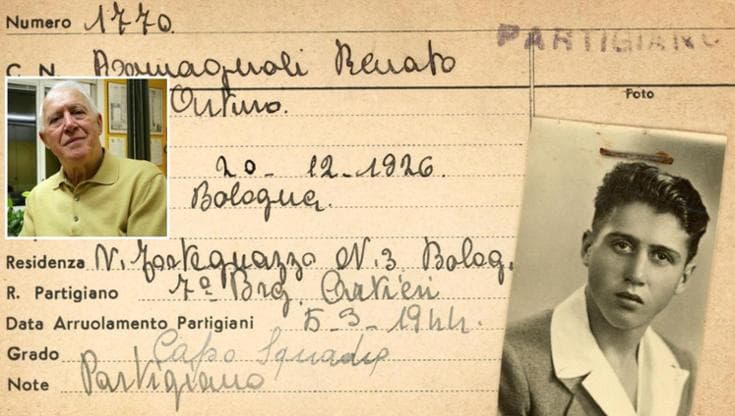 Numero 1770.
PARTIGIANO
C. N. Romagnoli Renato
Foto
20-12-1926.
Bologna.
Residenza N. 3 Bolog.
R. Partigiano 7ª Brg.
Data Arruolamento Partigiani 5-3-1944.
Grado Capo Squadra
Note Partigiano